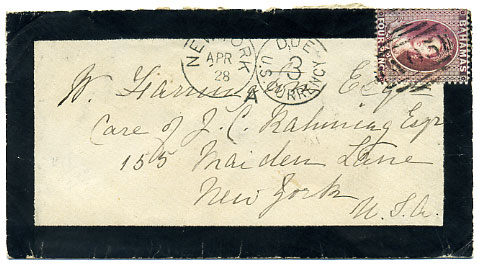 NEW YORK
APR
28
DUE
U.S. CURRENCY
BAHAMAS
FOUR PENCE
A
W. Esq
Care of J. C. Rahming Esqr
155 Maiden Lane
New York
U.S.A.